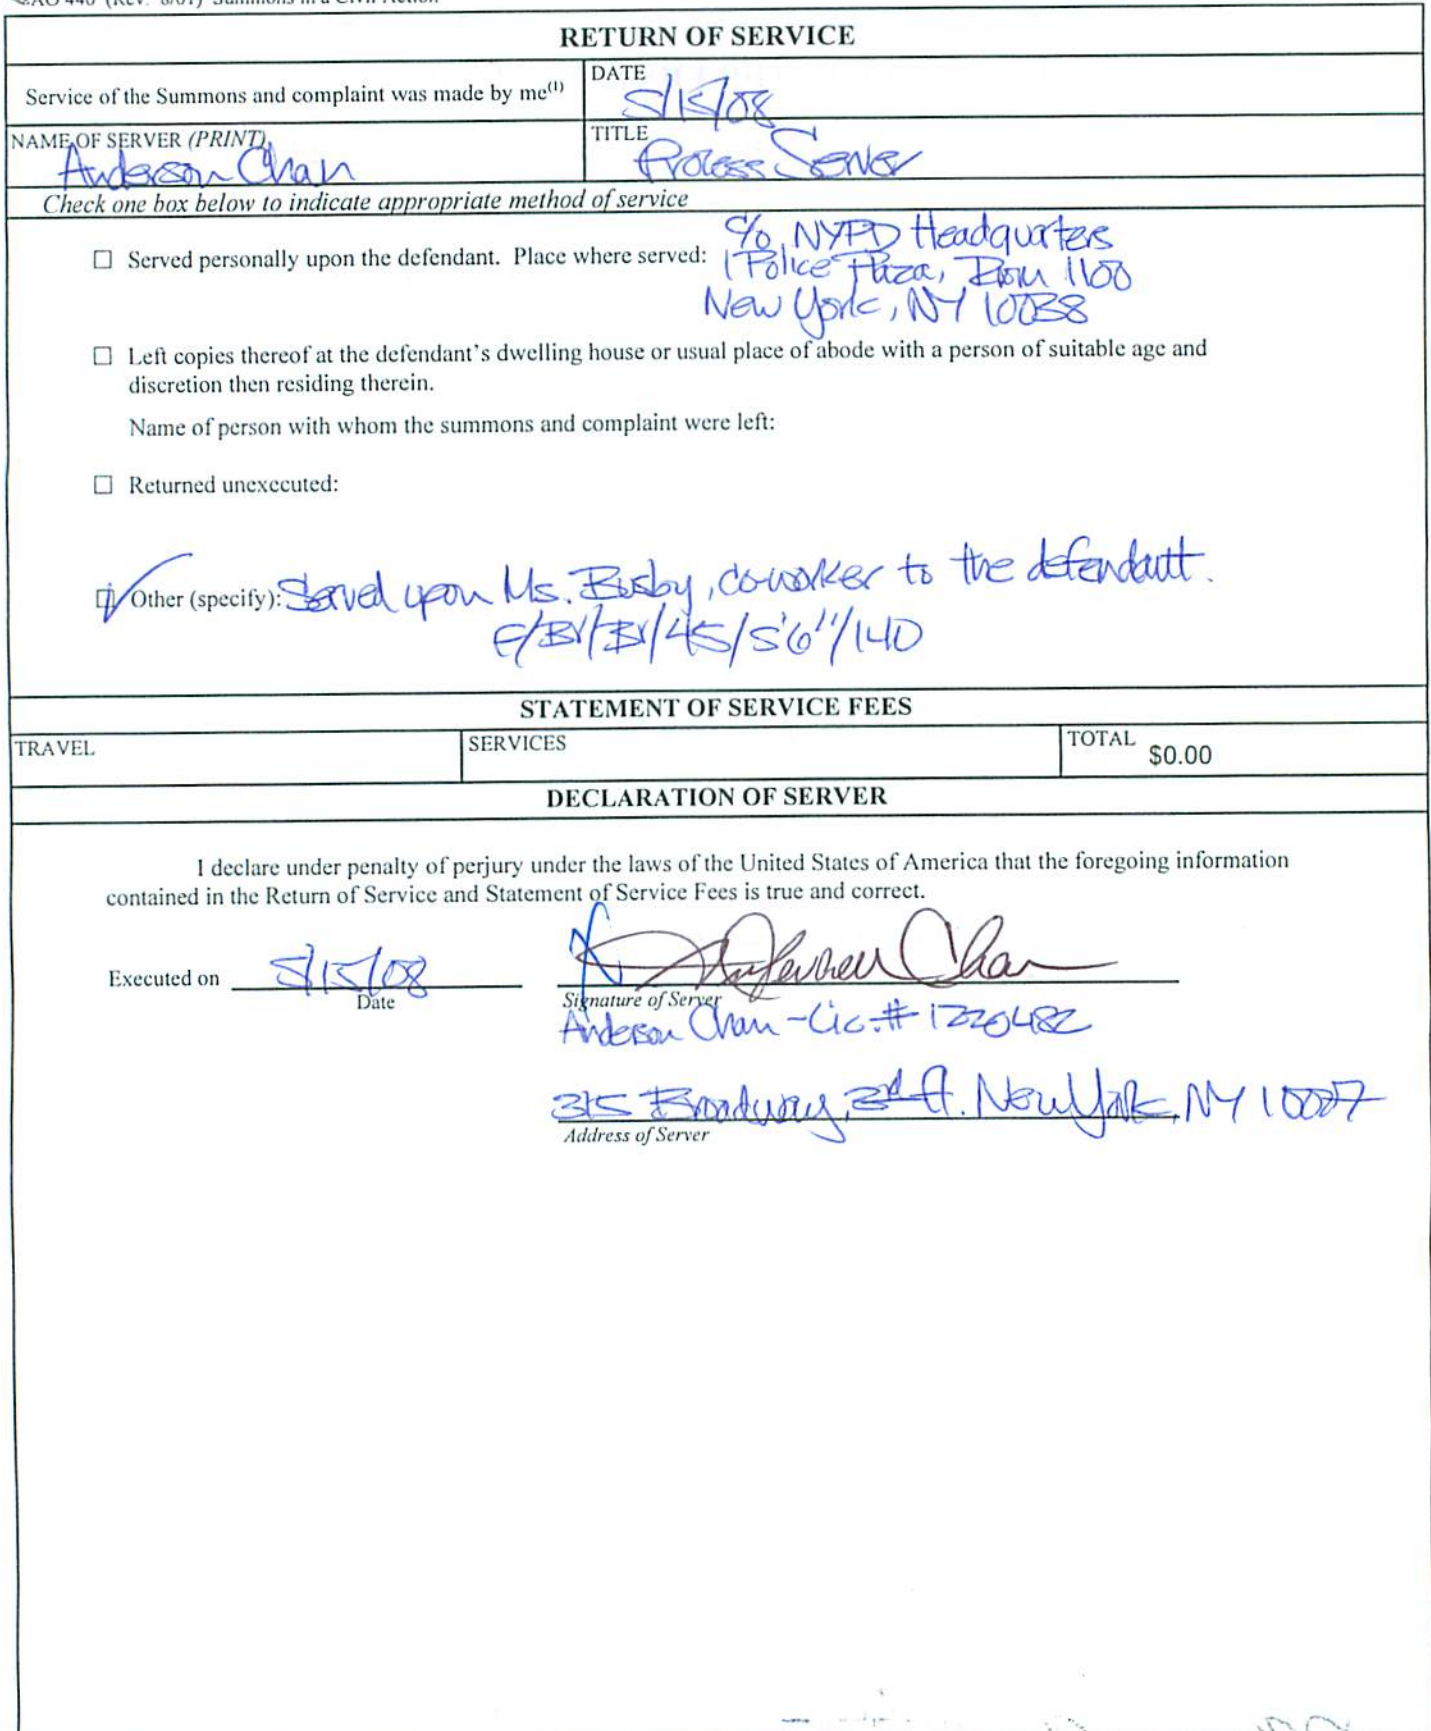 AO 440 (Rev. 8/01) Summons in a Civil Action
RETURN OF SERVICE
Service of the Summons and complaint was made by me(1)
DATE
5/15/08
NAME OF SERVER (PRINT)
Anderson Chan
TITLE
Process Server
Check one box below to indicate appropriate method of service
☐ Served personally upon the defendant. Place where served:
c/o NYPD Headquarters
1 Police Plaza, Room 1100
New York, NY 10038
☐ Left copies thereof at the defendant's dwelling house or usual place of abode with a person of suitable age and
discretion then residing therein.
Name of person with whom the summons and complaint were left:
☐ Returned unexecuted:
☑ Other (specify): Served upon Ms. Busby, co-worker to the defendant.
F/Bl/Bl/45/5'6"/140
STATEMENT OF SERVICE FEES
TRAVEL
SERVICES
TOTAL
$0.00
DECLARATION OF SERVER
I declare under penalty of perjury under the laws of the United States of America that the foregoing information
contained in the Return of Service and Statement of Service Fees is true and correct.
Executed on 5/15/08
Date
Anderson Chan
Signature of Server
Anderson Chan - Lic. # 1220482
315 Broadway, 3rd Fl. New York, NY 10007
Address of Server